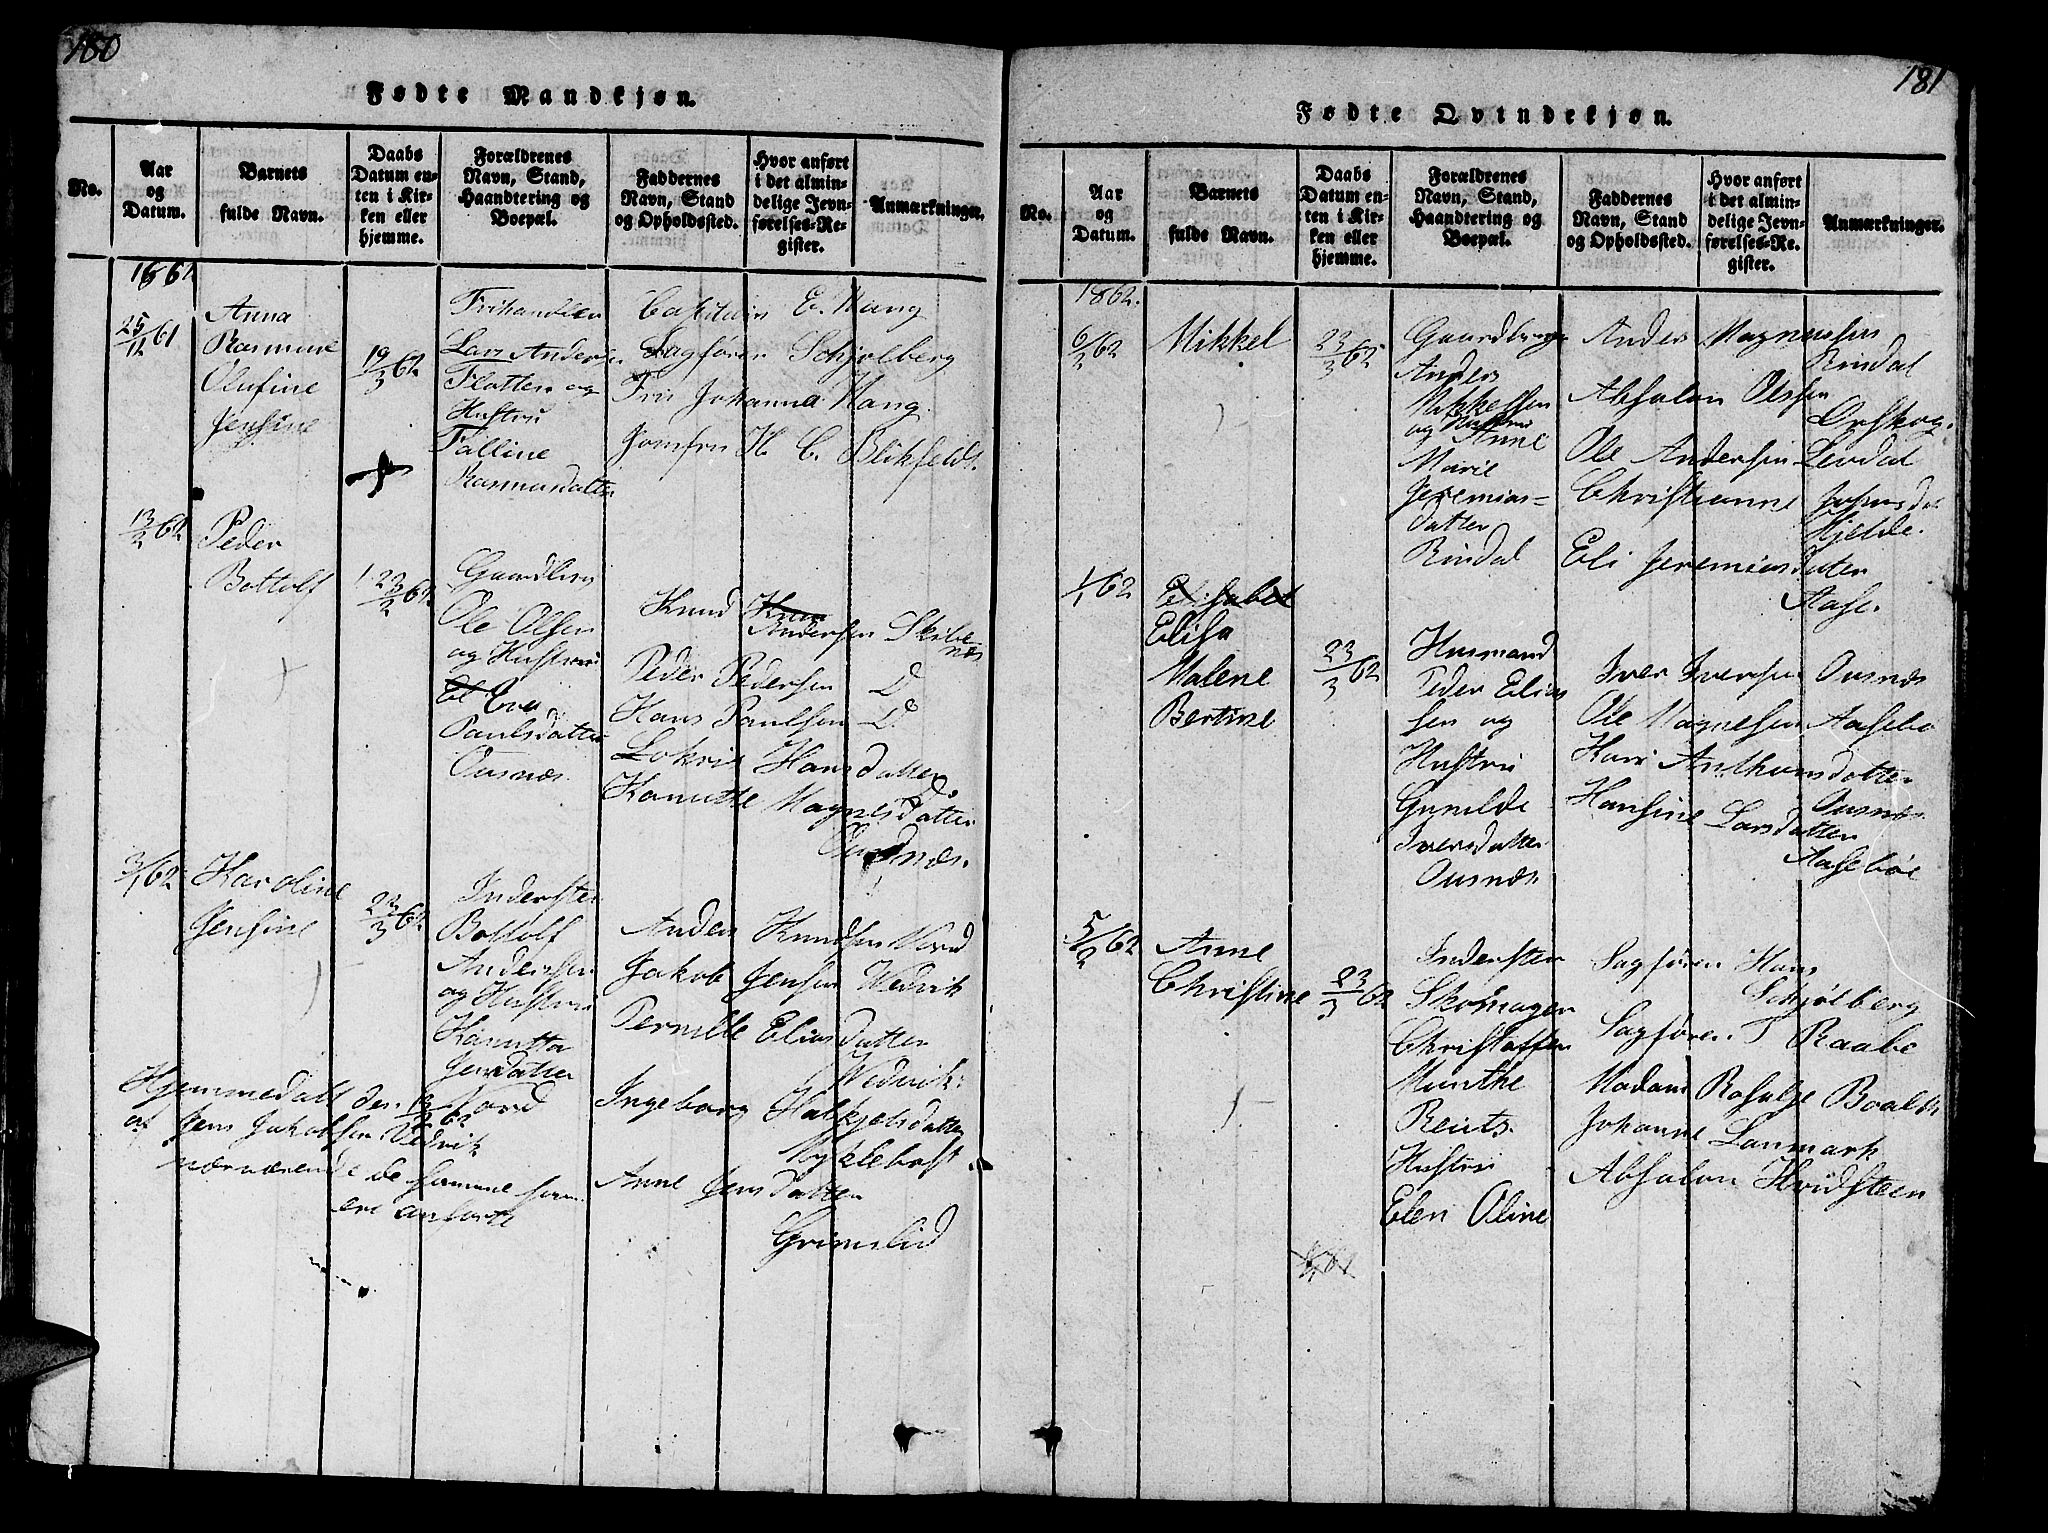 180
Fødte Mandkjøn.
No.
Aar og Datum.
Barnets fulde Navn.
Daabs Datum enten i Kirken eller hjemme.
Forældrenes Navn, Stand, Haandtering og Boepæl.
Faddernes Navn, Stand og Opholdssted.
Hvor anført i det almindelige Jevnførelses-Register.
Anmærkninger.
1861
25/12 61
Anna
Rasmine
Olufine
Jensine
19/3 62
Frihandler
Lars Anders
Flotten og
Hustru
Talline
Rasmusdatter
Capitain E. Hang
Sagfører Schjølberg
Fru Johanna Hang
Jomfru H. C. Blikfeldt
13/2 62
Peder
Bottolf
23/2 62
Gaardbrug
Ole Olsen
og Hustru
El Ewa
Paulsdatter
Ousnæs
Knud Knu Andersen Skibenæs
Peder Pedersen D
Hans Paulsen D.
Lokris Hansdatter D.
Kanutte Magnesdatter
Ousnæs.
3/1 62
Karoline
Jensine
23/3 62
Inderster
Bottolf
Andersen
og Hustru
Kanutta
Jensdatter
Vord
Anders Knudsen Vord
Jakob Jensen Wedvik
Pernille Eliasdatter
Wedvik.
Ingeborg Halkjelsdatter
Myklebost
Anne Jensdatter
Grimslid
Hjemmedøbt den 13/2 62
af Jens Jakobsen Vedvik
nærværende de samme som
ere anførte
181
Fødte Qvindekjøn.
No.
Aar og Datum.
Barnets fulde Navn.
Daabs Datum enten i Kirken eller hjemme.
Forældrenes Navn, Stand, Haandtering og Boepæl.
Faddernes Navn, Stand og Opholdssted.
Hvor anført i det almindelige Jevnførelses-Register.
Anmærkninger.
1862.
6/2 62
Mikkel
23/3 62
Gaardbruge
Anders
Mikkelsen
og Hustru
Anne
Marie
Jeremias-
datter
Rindal
Anders Magnussen
Rindal
Absalon Olsen
Ørskog.
Ole Andersen Levdal
Christianne Johnsdat
Hjelde.
Eli Jeremiasdatter
Aase.
1/1 62
Elisabet
Elisa
Malene
Bertine
23/3 62
Husmand
Peder Elias
sen og
Hustru
Gunilde
Iversdatter
Ousnæs
Iver Iversen Ousnæs
Ole Magnesen Aasebø
Kari Anthonsdatter
Ousnæs
Hansine Larsdatter
Aasebøe
5/2 62
Anne
Christine
23/3 62
Inderster
Skomager
Christoffer
Munthe
Reuts.
Hustru
Elen Oline
Sagfører Hans
Schjølberg
Sagfører T Raabe
Madam Rosalse Boalth
Johanne Lanmark
Absalon Hvidsteen